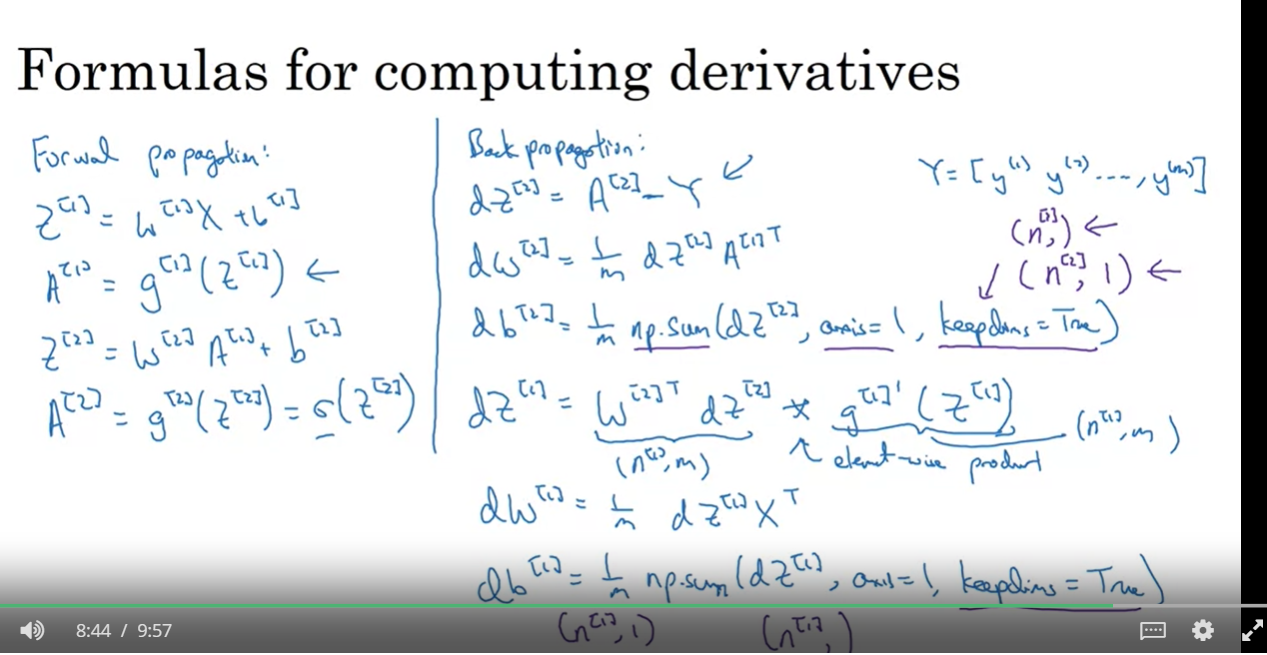 Formulas for computing derivatives
Forward propagation:
Z^[1] = W^[1]X + b^[1]
A^[1] = g^[1](Z^[1]) ←
Z^[2] = W^[2] A^[1] + b^[2]
A^[2] = g^[2](Z^[2]) = σ(Z^[2])
Back propagation:
dZ^[2] = A^[2] - Y ↙
dW^[2] = 1/m dZ^[2] A^[1]T
db^[2] = 1/m np.sum(dZ^[2], axis=1, keepdims=True)
dZ^[1] = W^[2]T dZ^[2] * g^[1]'(Z^[1])
(n^[1], m) ↖ element-wise product (n^[1], m)
dW^[1] = 1/m dZ^[1] X^T
db^[1] = 1/m np.sum(dZ^[1], axis=1, keepdims=True)
(n^[1], 1) (n^[1],)
Y = [y^(1) y^(2) ...., y^(m)]
(n^[2],) ←
↙ (n^[2], 1) ←
8:44 / 9:57